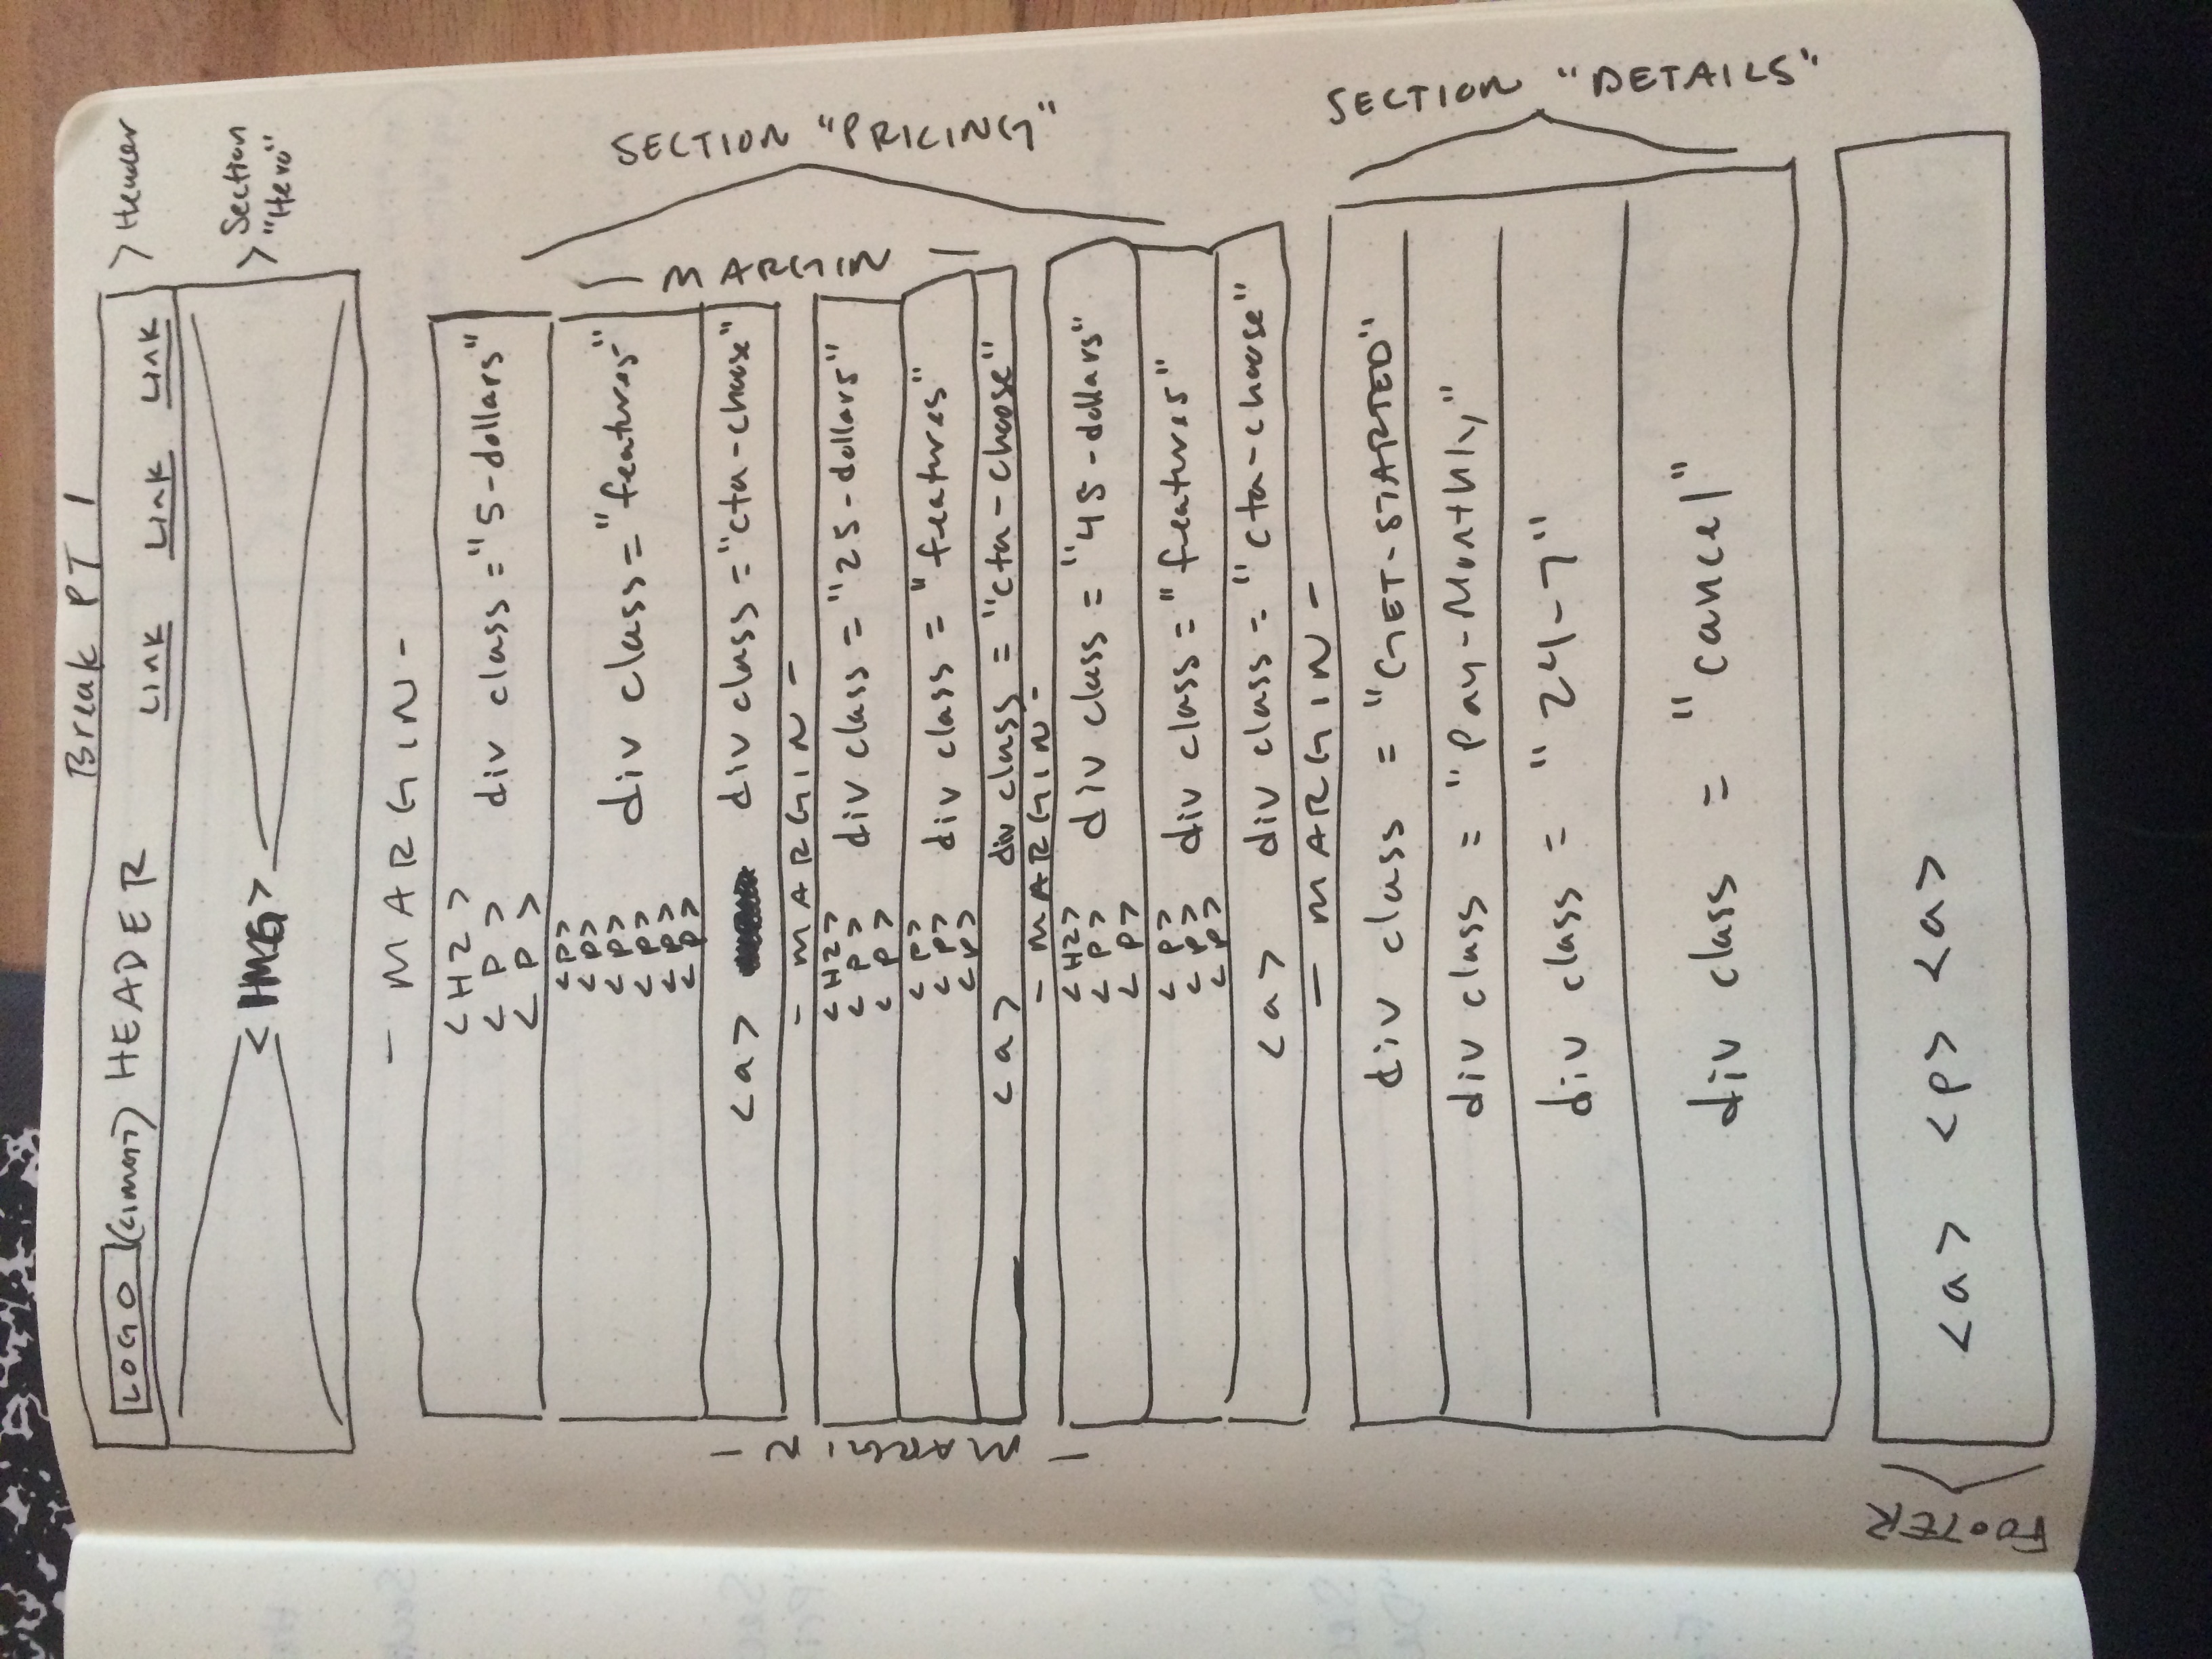 Break PT 1
LOGO (<img>) HEADER
Link Link Link
> Header
<IMG>
> Section
"Hero"
- MARGIN -
<H2>
<P> div class="5-dollars"
<P>
<p>
<p>
<p> div class="features"
<p>
<p>
<p>
<a> div class="cta-choose"
- MARGIN -
<H2>
<P> div class = "25-dollars"
<P>
<p>
<p> div class = "features"
<p>
<a> div class = "cta-choose"
- MARGIN -
<H2>
<P> div class = "45-dollars"
<P>
<p>
<p> div class = "features"
<p>
<a> div class = "cta-choose"
- MARGIN -
- MARGIN -
- MARGIN -
SECTION "PRICING"
div class = "GET-STARTED"
div class = "Pay-Monthly"
div class = "24-7"
div class = "cancel"
SECTION "DETAILS"
FOOTER
<a> <p> <a>